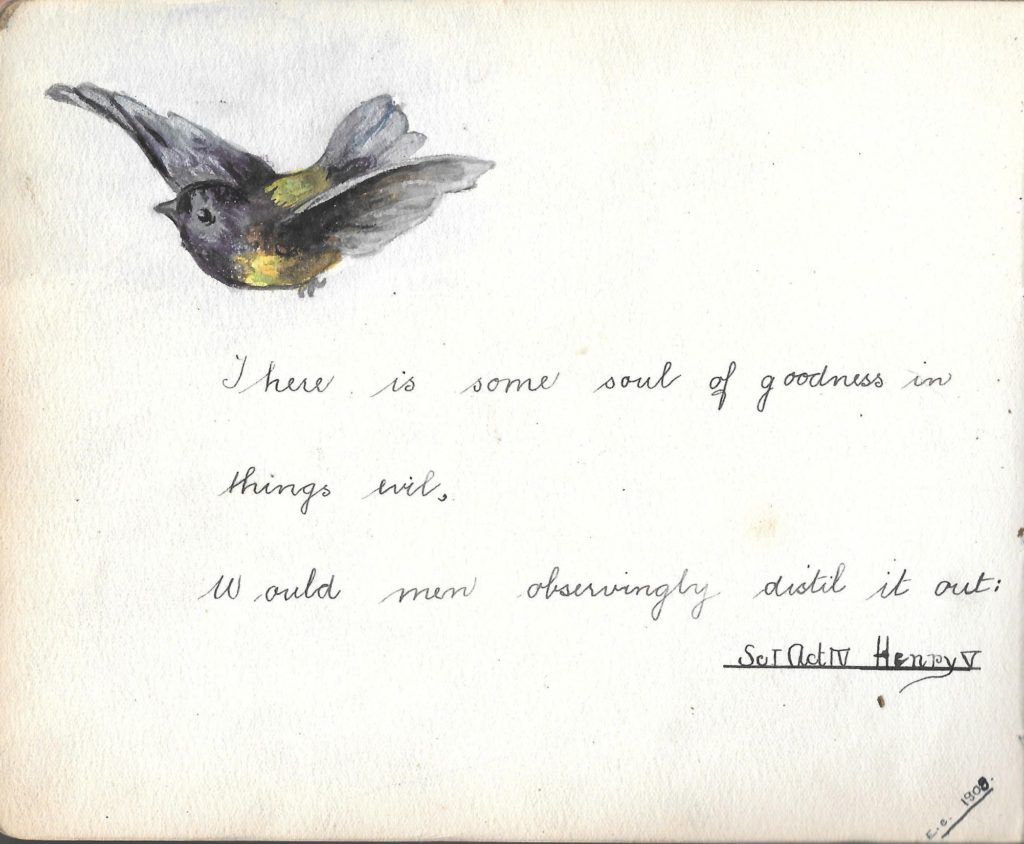 There is some soul of goodness in
things evil,
Would men observingly distil it out:
Sc I Act IV Henry V
E.C. 1908.